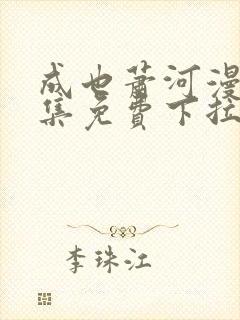 成也萧河漫
集免费下拉
李珠江